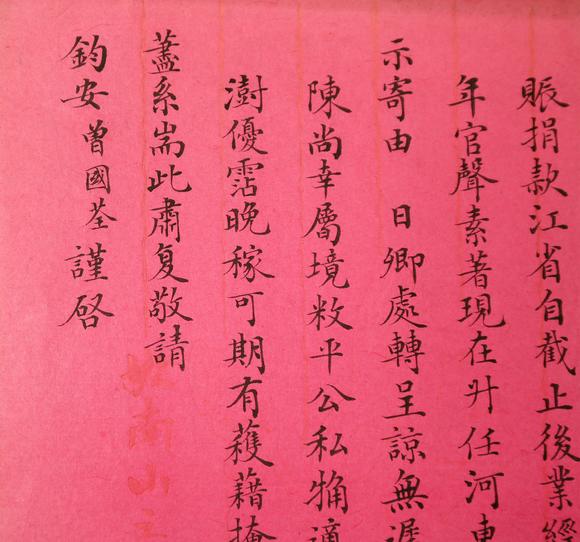 賑捐款江省自截止後業經
年官聲素著現在升任河東
示寄由 日卿處轉呈諒無遲
陳尚幸屬境敉平公私犕適
澍優霑晚稼可期有蔉藉掩
藎系耑此肅复敬請
鈞安曾國荃謹啓